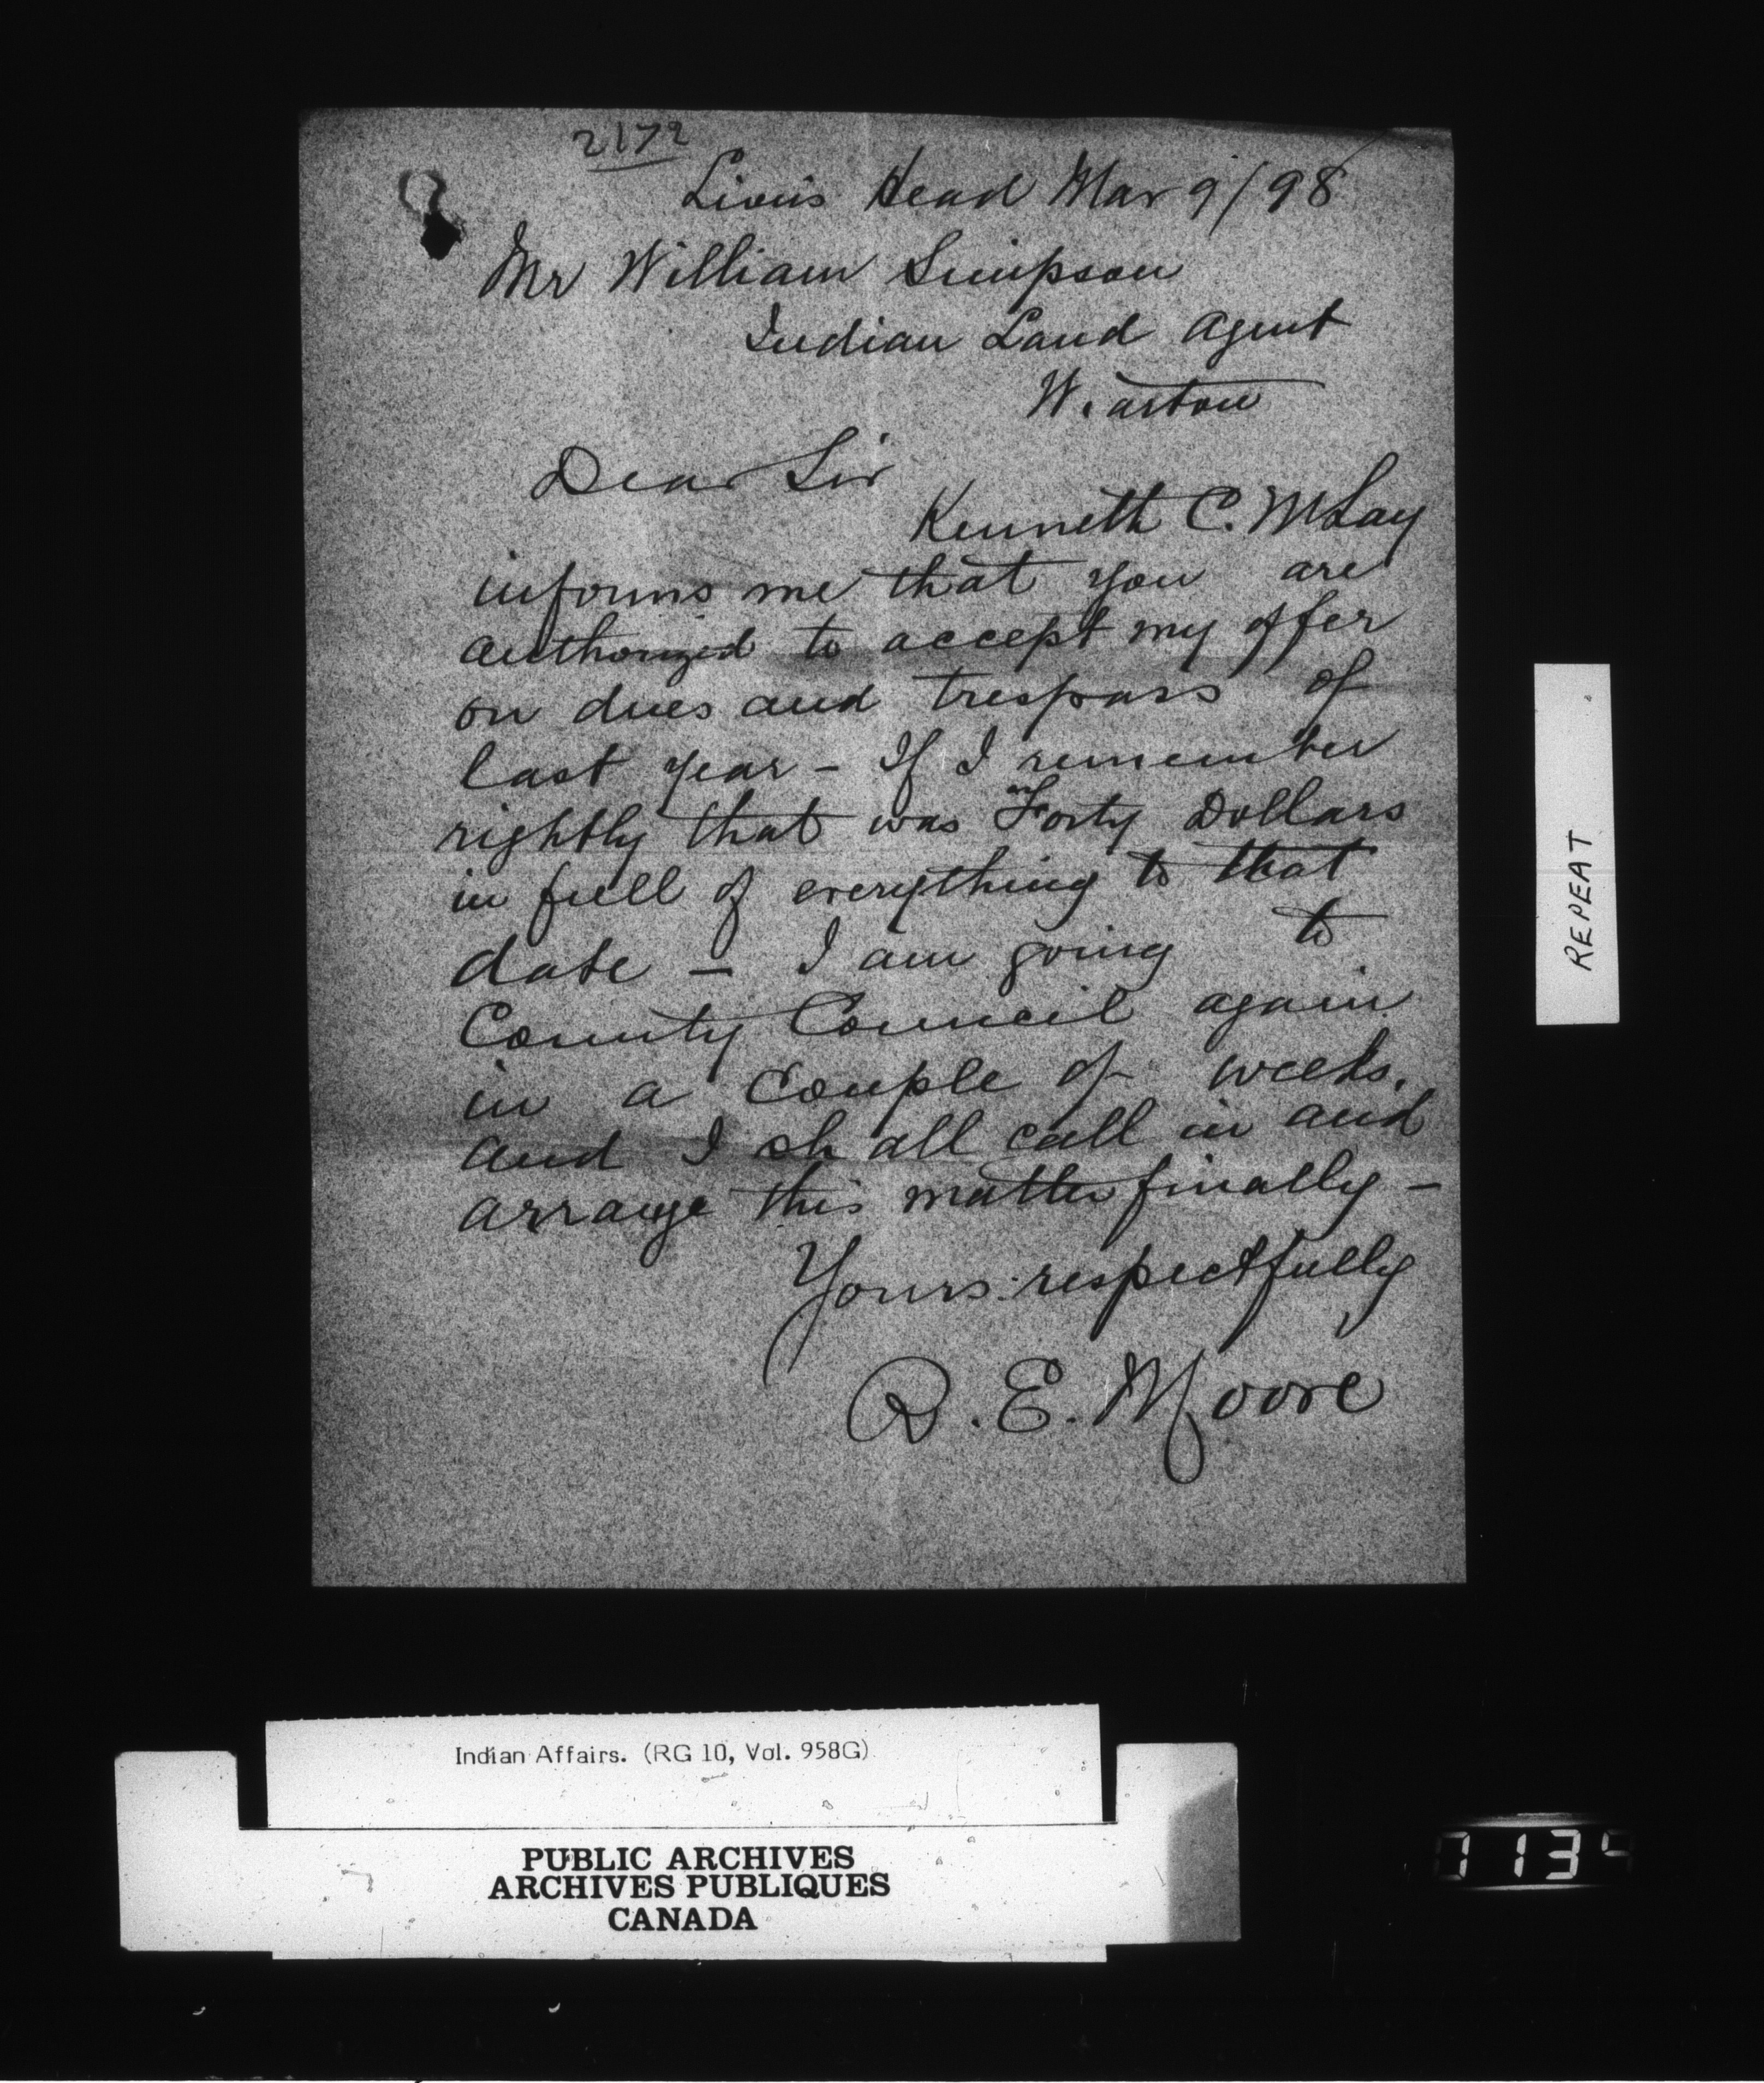 2172
Lion's Head Mar 9/98
Mr William Simpson
Indian Land Agent
Wiarton
Dear Sir
Kenneth C. McLay
informs me that you are
authorized to accept my offer
on dues and trespass of
last year - If I remember
rightly that was Forty Dollars
in full of everything to that
date - I am going to
County Council again
in a couple of weeks.
and I shall call in and
arrange this matter finally -
Yours respectfully
R. E. Moore
REPEAT
Indian Affairs. (RG 10, Vol. 958G)
PUBLIC ARCHIVES
ARCHIVES PUBLIQUES
CANADA